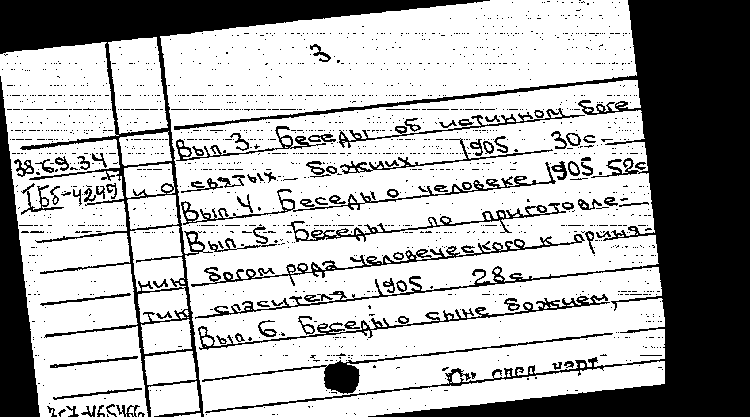 3.
Вып. 3. Беседы об истинном боге
38.69.34
и о святых божиих. 1905. 30с.
IБб-4249
Вып. 4. Беседы о человеке. 1905. 52с
Вып. 5. Беседы по приготовле-
нию богом рода человеческого к приня-
тию спасителя. 1905. 28с.
Вып. 6. Беседы о сыне божием,
См след карт.